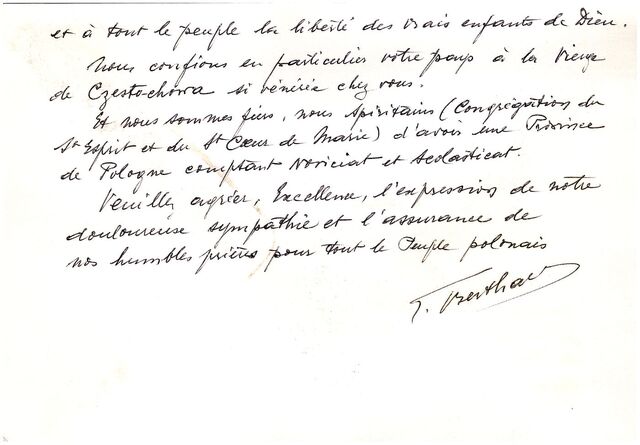 et à tout le peuple la liberté des vrais enfants de Dieu.
Nous confions en particulier votre pays à la Vierge
de Czestochowa si vénérée chez vous.
Et nous sommes fiers, nous Spiritains (Congrégation du
St Esprit et du St Cœur de Marie) d'avoir une Province
de Pologne comptant Noviciat et Scolasticat.
Veuillez agréer, Excellence, l'expression de notre
douloureuse sympathie et l'assurance de
nos humbles prières pour tout le Peuple polonais